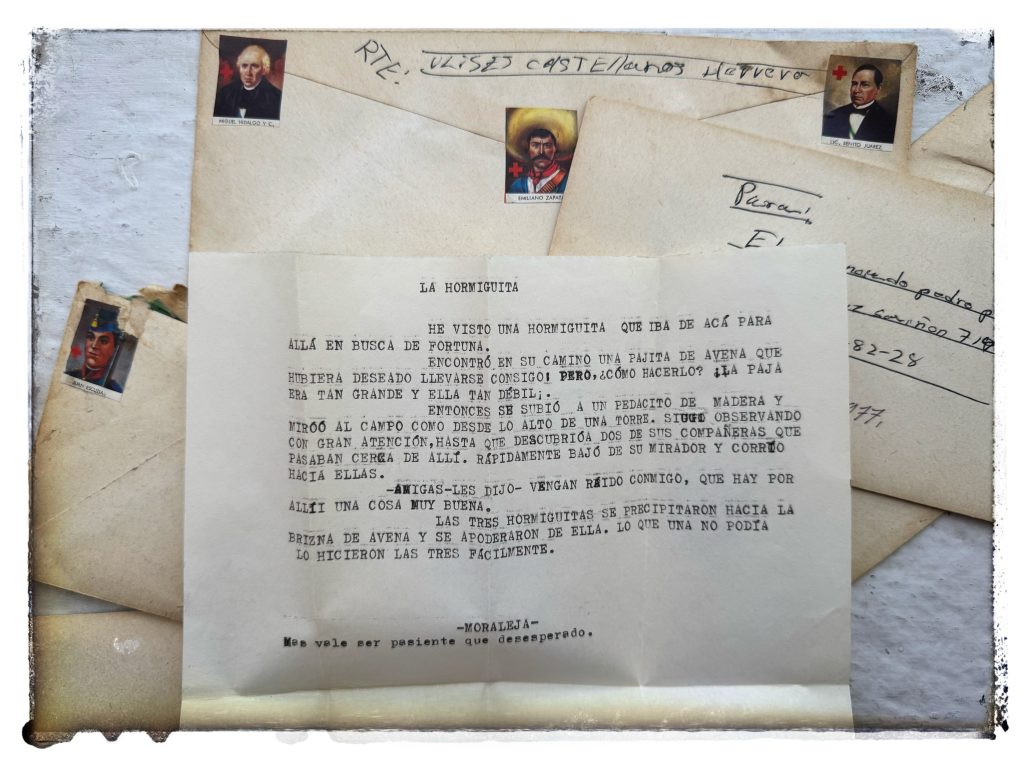 RTE: ULISES CASTELLANOS HERRERA
MIGUEL HIDALGO Y C.
LIC. BENITO JUAREZ
EMILIANO ZAPATA
Para:
El
pedro p
82-28
977.
JUAN ESCUTIA
LA HORMIGUITA
HE VISTO UNA HORMIGUITA QUE IBA DE ACÁ PARA
ALLÁ EN BUSCA DE FORTUNA.
ENCONTRÓ EN SU CAMINO UNA PAJITA DE AVENA QUE
HUBIERA DESEADO LLEVARSE CONSIGO¡ PERO,¿CÓMO HACERLO? ¡LA PAJA
ERA TAN GRANDE Y ELLA TAN DÉBIL¡.
ENTONCES SE SUBIÓ A UN PEDACITO DE MADERA Y
MIROÓ AL CAMPO COMO DESDE LO ALTO DE UNA TORRE. SIUGI OBSERVANDO
CON GRAN ATENCIÓN,HASTA QUE DESCUBRIÓA DOS DE SUS COMPAÑERAS QUE
PASABAN CERCA DE ALLÍ. RÁPIDAMENTE BAJÓ DE SU MIRADOR Y CORRIO
HACIA ELLAS.
-AMIGAS-LES DIJO- VENGAN RÁIDO CONMIGO, QUE HAY POR
ALLÍI UNA COSA MUY BUENA.
LAS TRES HORMIGUITAS SE PRECIPITARON HACIA LA
BRIZNA DE AVENA Y SE APODERARON DE ELLA. LO QUE UNA NO PODÍA
LO HICIERON LAS TRES FÁCILMENTE.
-MORALEJA-
Mas vale ser pasiente que desesperado.